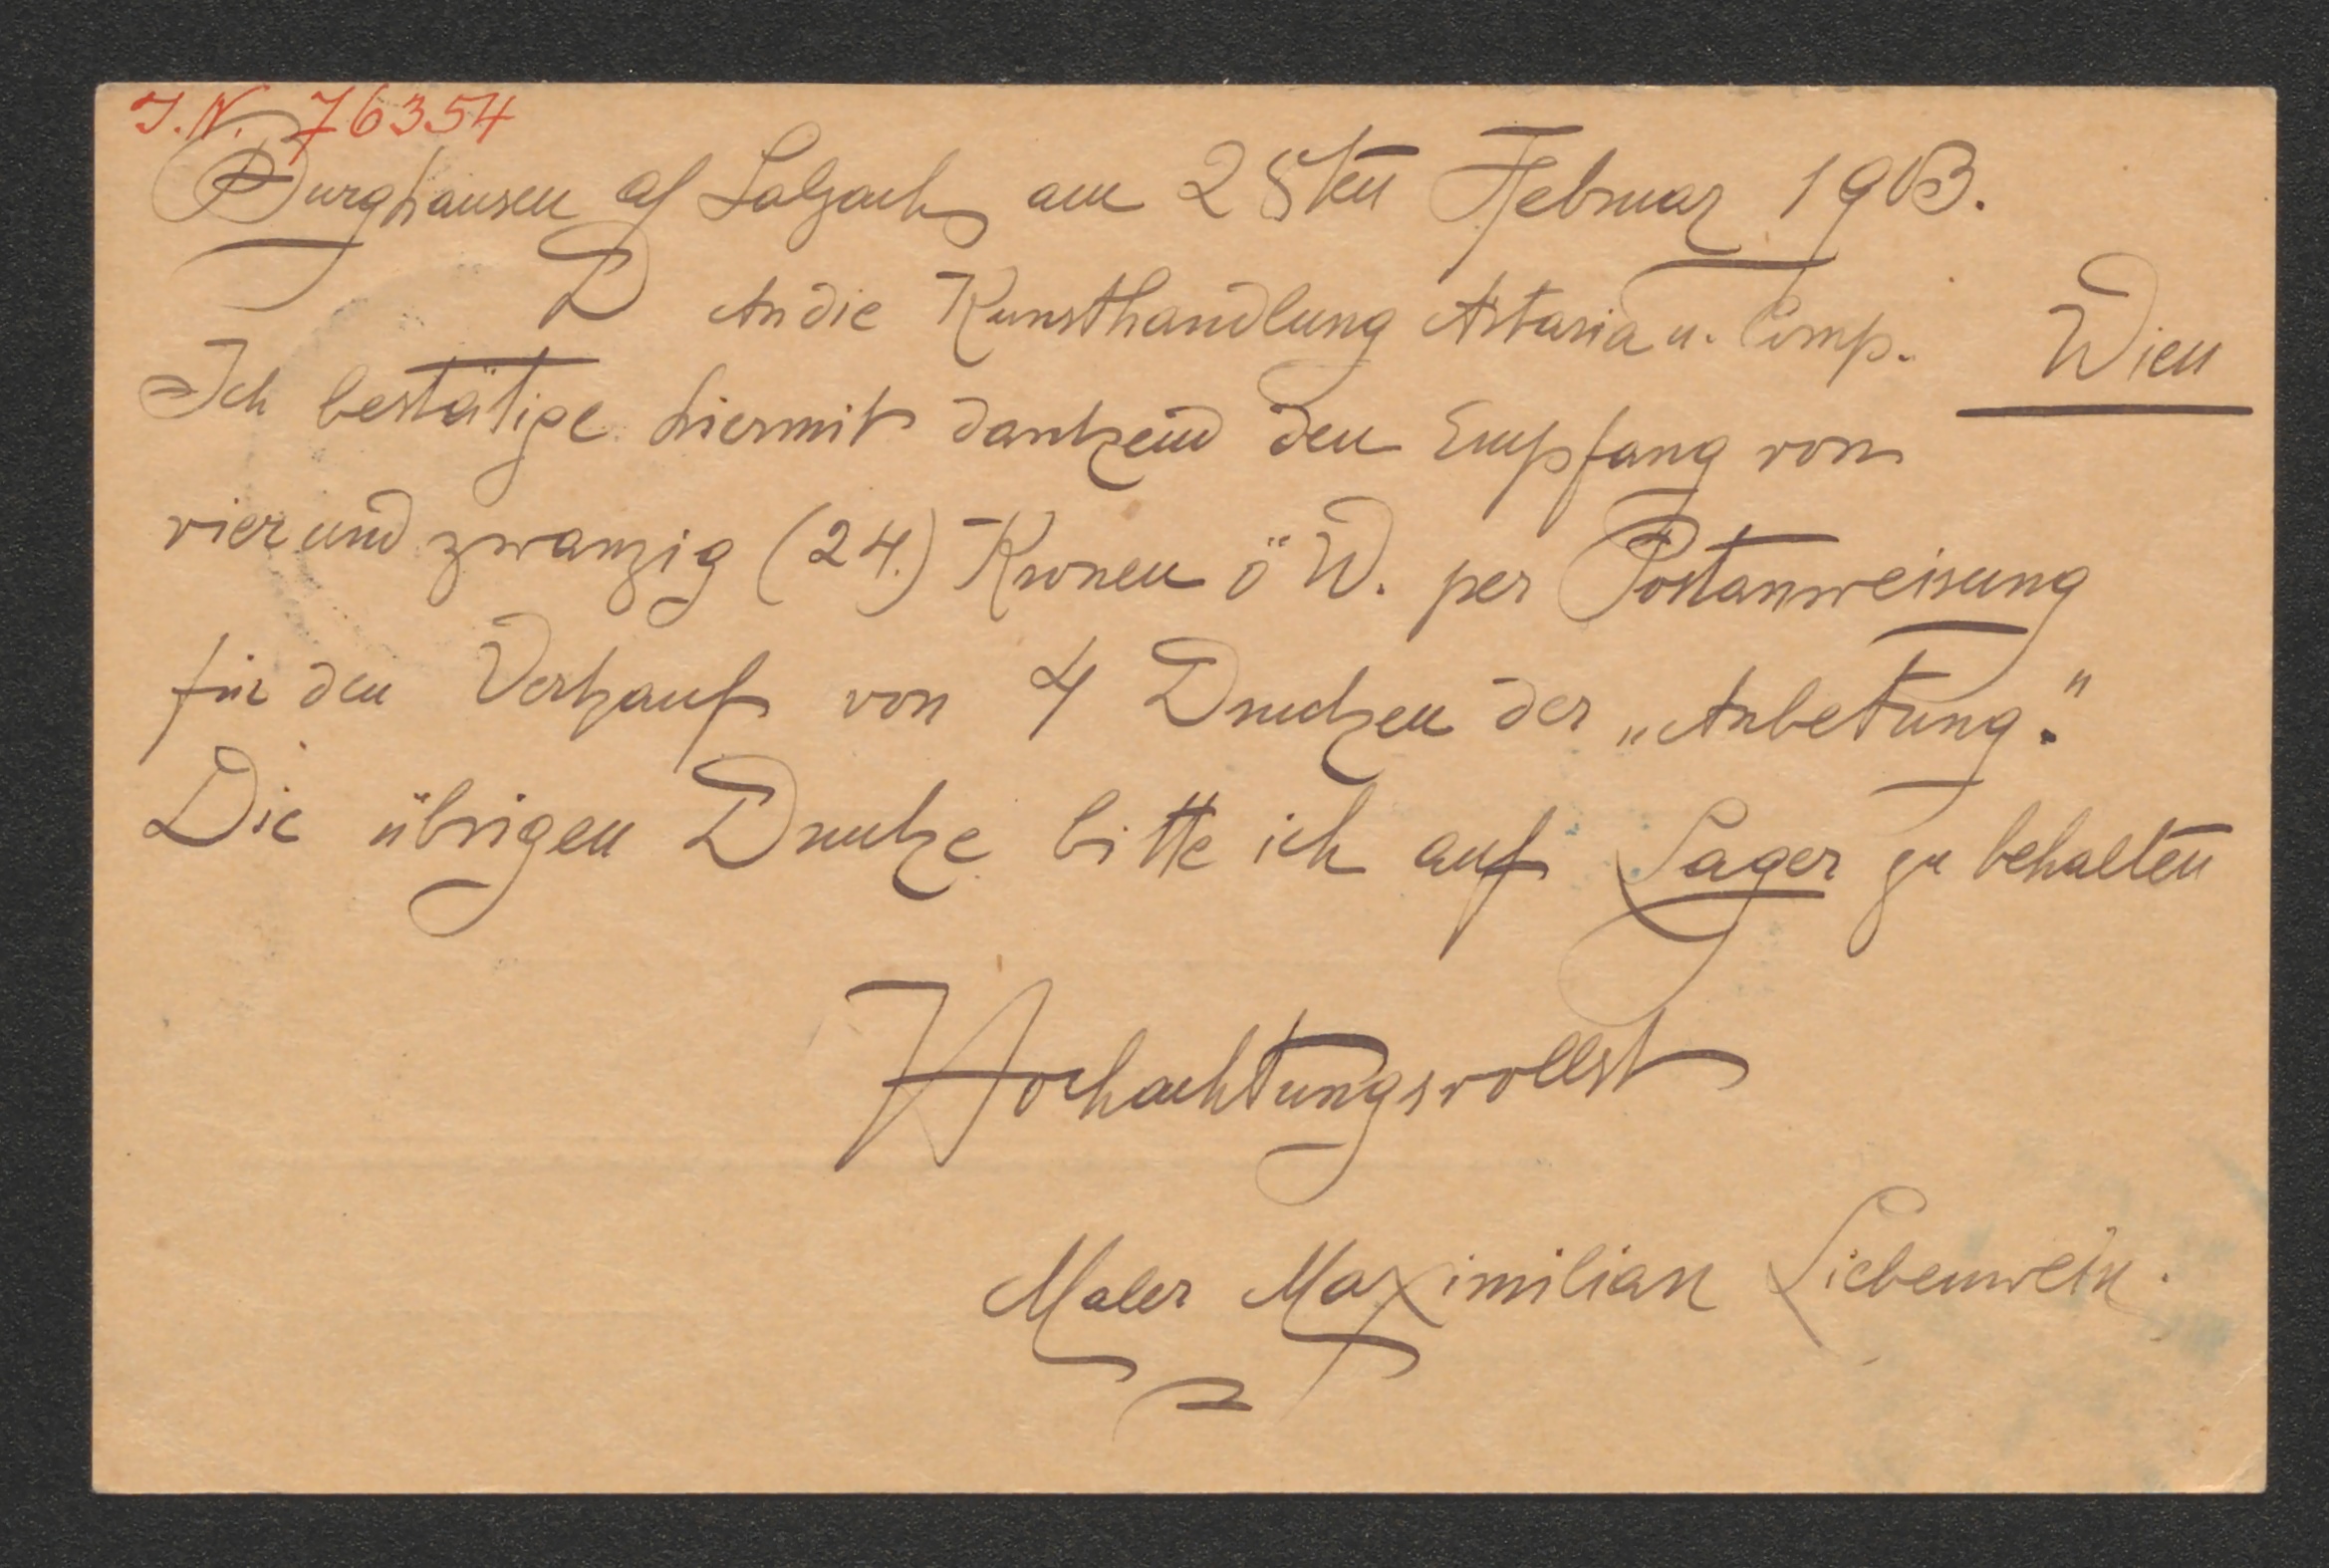 J.N. 76354
Burghausen a/ Salzach am 25ten Februar 1903.
An die Kunsthandlung Artaria u. Comp. Wien
Ich bestätige hiermit dankend den Empfang von
vier und zwanzig (24.) Kronen ö W. per Postanweisung
für den Verkauf von 4 Drucken der „Anbetung."
Die übrigen Drucke bitte ich auf Lager zu behalten
Hochachtungsvollst
Maler Maximilian Liebenwein.